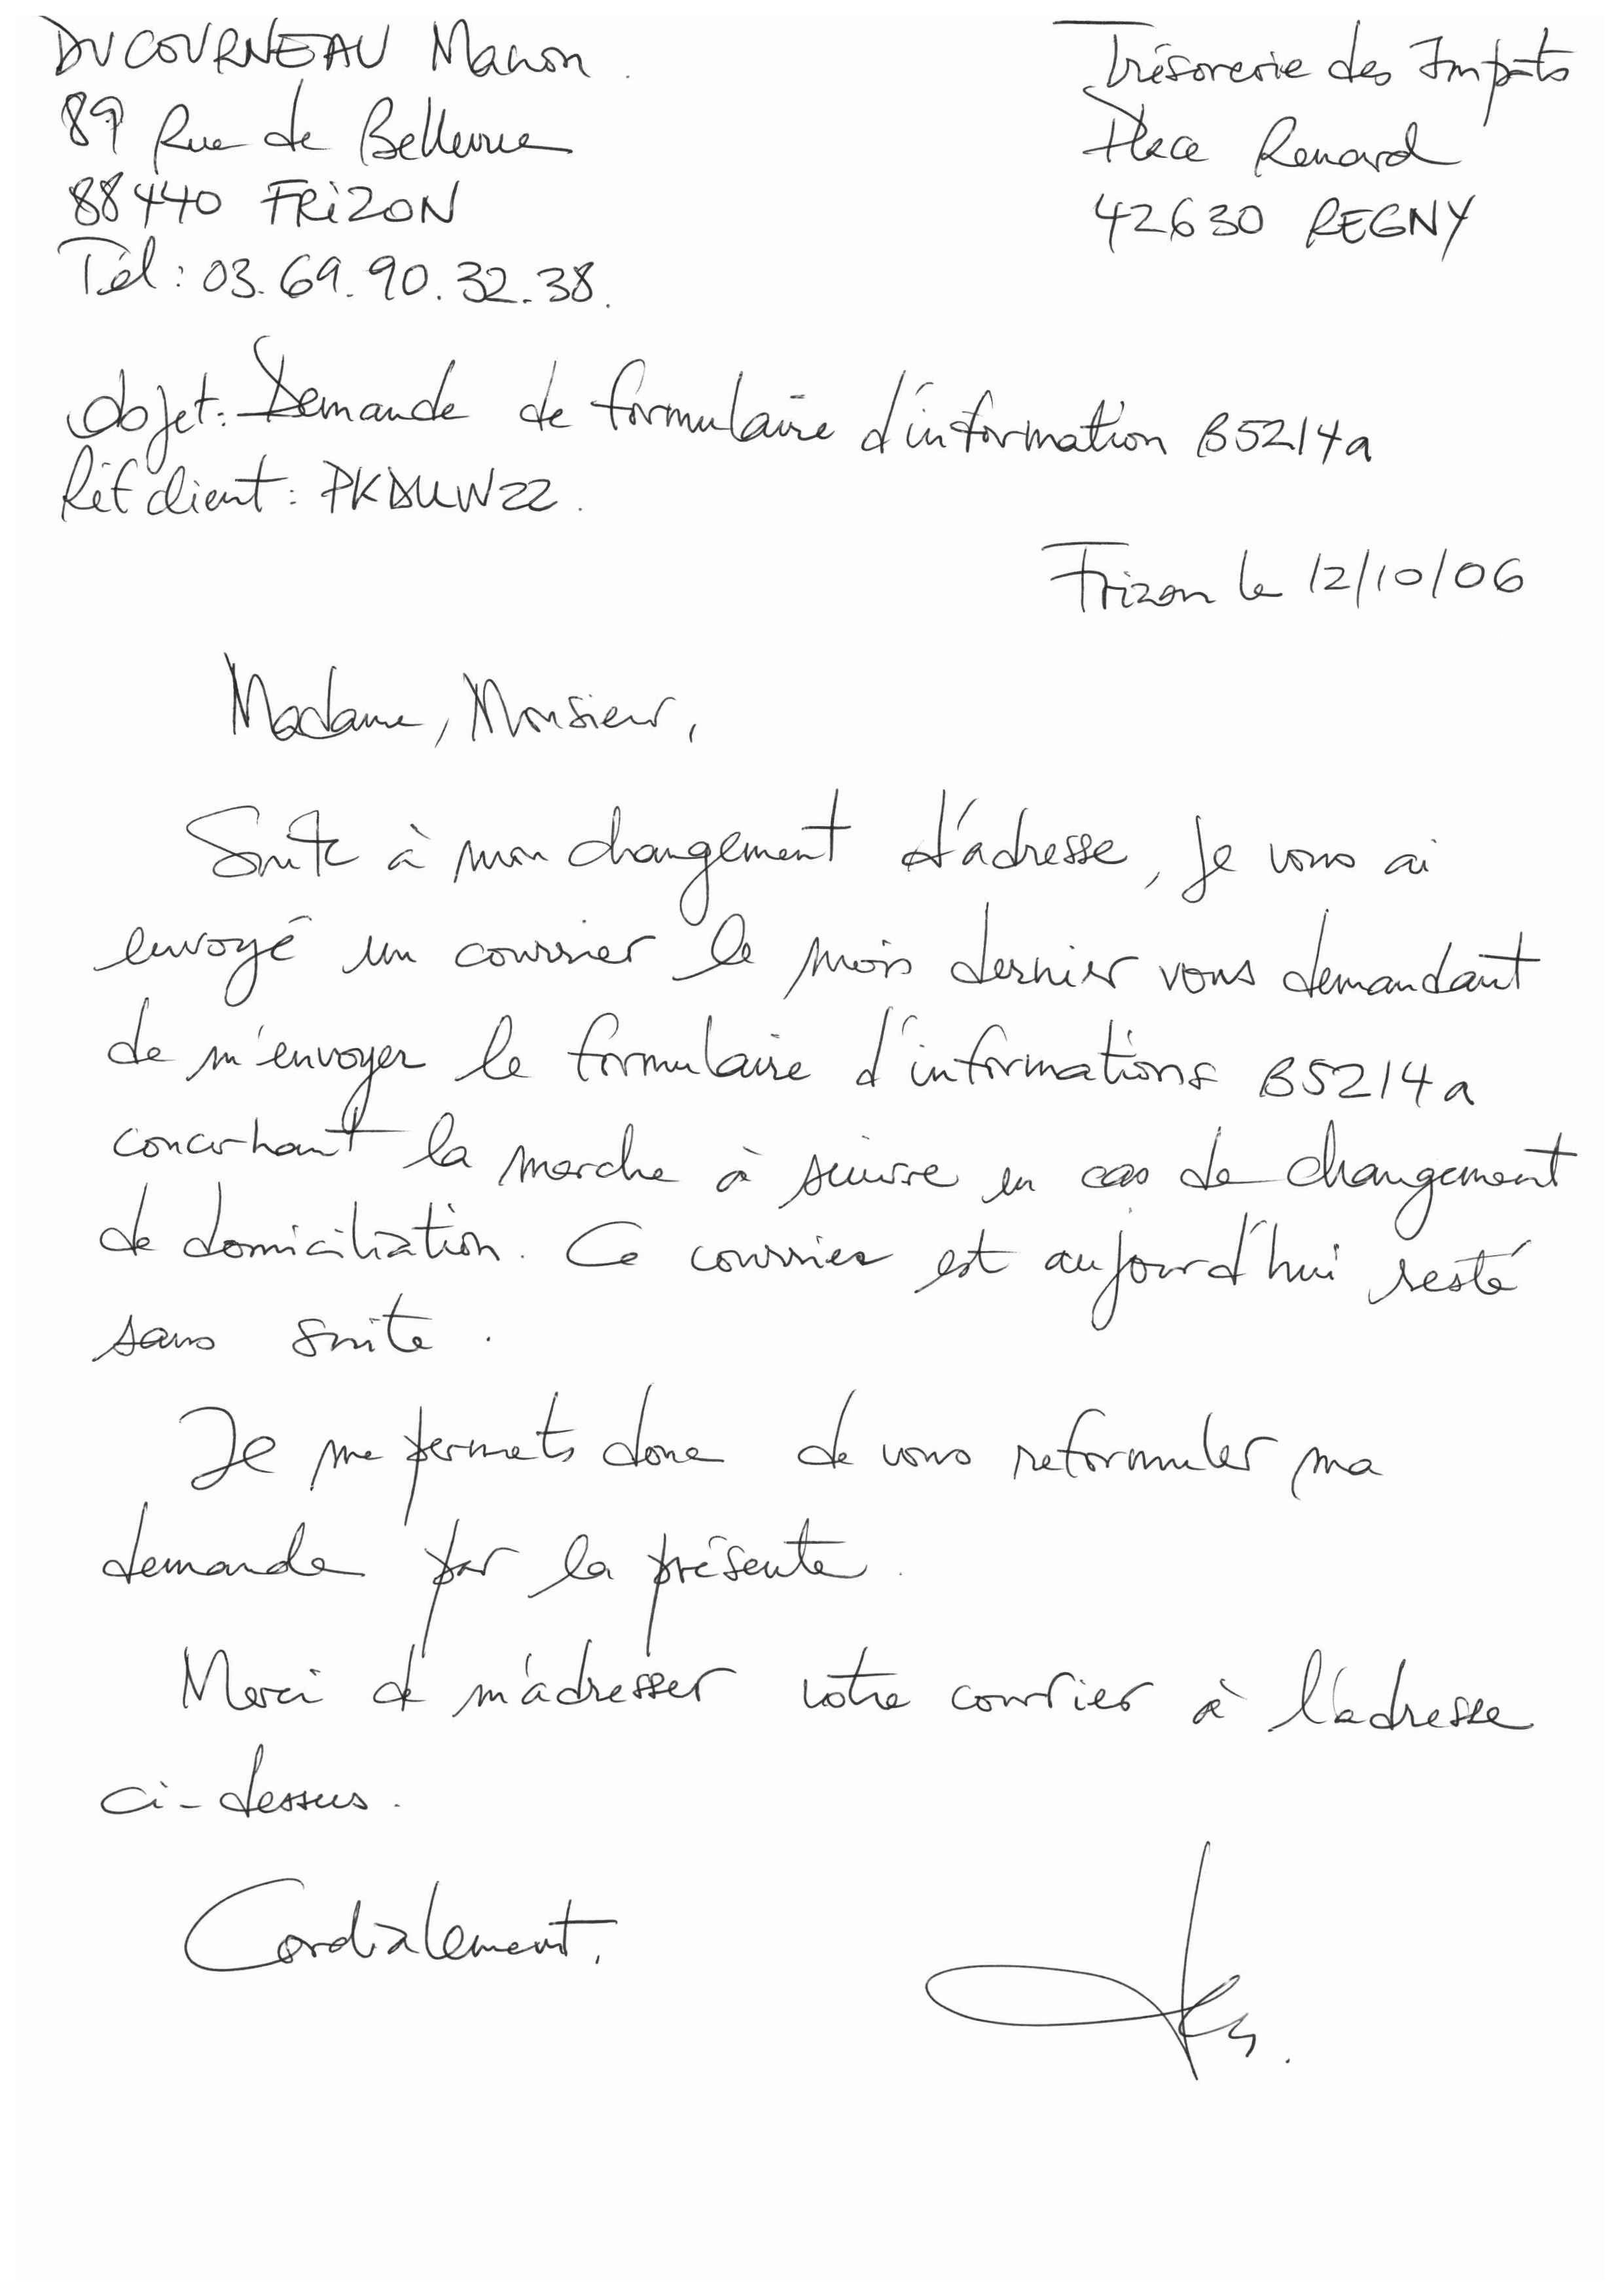 DUCOURNEAU Manon.
89 Rue de Bellevue
88440 FRIZON
Tél : 03.69.90.32.38.
Trésorerie des Impôts
Place Renard
42630 REGNY
Objet : Demande de formulaire d'information B5214a
Réf client : PKDUW22.
Frizon le 12/10/06
Madame, Monsieur,
Suite à mon changement d'adresse, je vous ai
envoyé un courrier le mois dernier vous demandant
de m'envoyer le formulaire d'informations B5214a
concernant la marche à suivre en cas de changement
de domiciliation. Ce courrier est aujourd'hui resté
sans suite.
Je me permets donc de vous reformuler ma
demande par la présente.
Merci de m'adresser votre courrier à l'adresse
ci-dessus.
Cordialement.